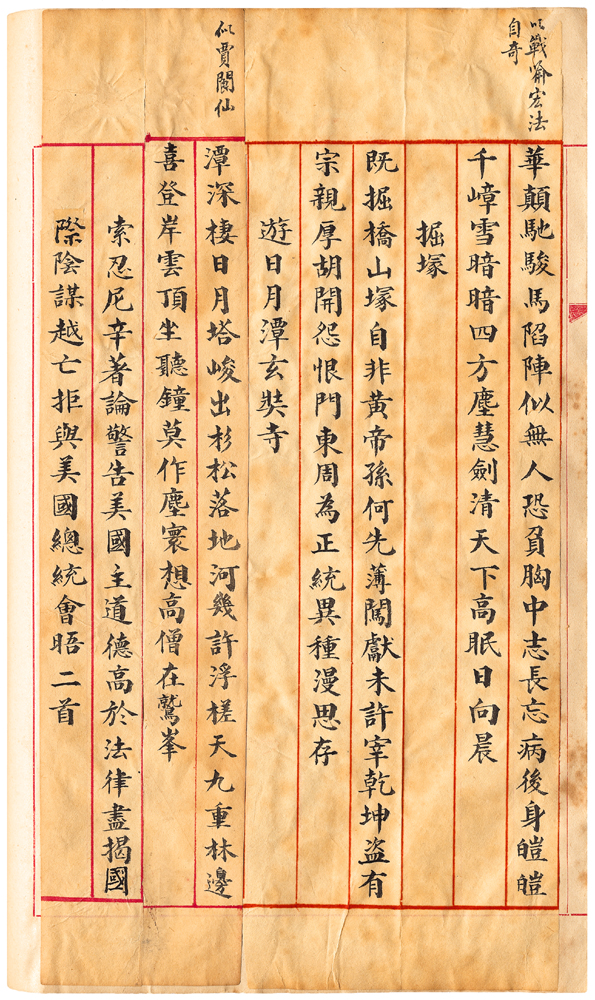 以戰喻宏法
自奇
華顛馳駿馬陷陣似無人恐負胸中志長忘病後身皚皚
千嶂雪暗暗四方塵慧劍清天下高眠日向晨
掘塚
既掘橋山塚自非黃帝孫何先薄闖獻未許宰乾坤盜有
宗親厚胡開怨恨門東周為正統異種漫思存
遊日月潭玄奘寺
似賈閬仙
潭深棲日月塔峻出杉松落地河幾許浮槎天九重林邊
喜登岸雲頂坐聽鐘莫作塵寰想高僧在鷲峯
索忍尼辛著論警告美國主道德高於法律盡揭國
際陰謀越亡拒與美國總統會晤二首